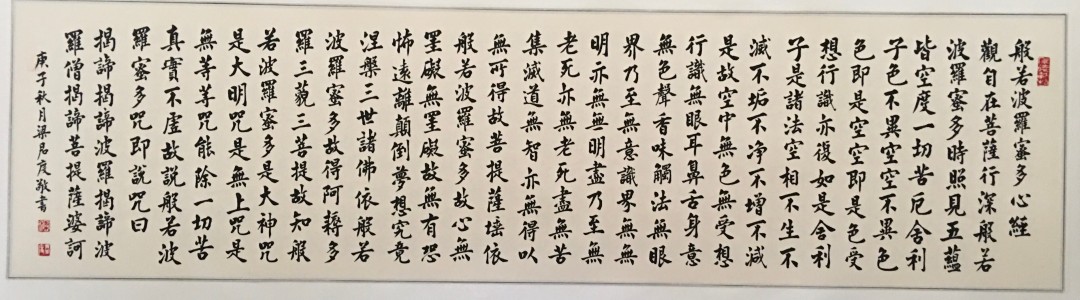 般若波羅蜜多心經
觀自在菩薩行深般若
波羅蜜多時照見五蘊
皆空度一切苦厄舍利
子色不異空空不異色
色即是空空即是色受
想行識亦復如是舍利
子是諸法空相不生不
滅不垢不净不增不減
是故空中無色無受想
行識無眼耳鼻舌身意
無色聲香味觸法無眼
界乃至無意識界無無
明亦無無明盡乃至無
老死亦無老死盡無苦
集滅道無智亦無得以
無所得故菩提薩埵依
般若波羅蜜多故心無
罣礙無罣礙故無有恐
怖遠離顛倒夢想究竟
涅槃三世諸佛依般若
波羅蜜多故得阿耨多
羅三藐三菩提故知般
若波羅蜜多是大神咒
是大明咒是無上咒是
無等等咒能除一切苦
真實不虛故說般若波
羅蜜多咒即說咒曰
揭諦揭諦波羅揭諦波
羅僧揭諦菩提薩婆訶
庚子秋月梁君度敬書